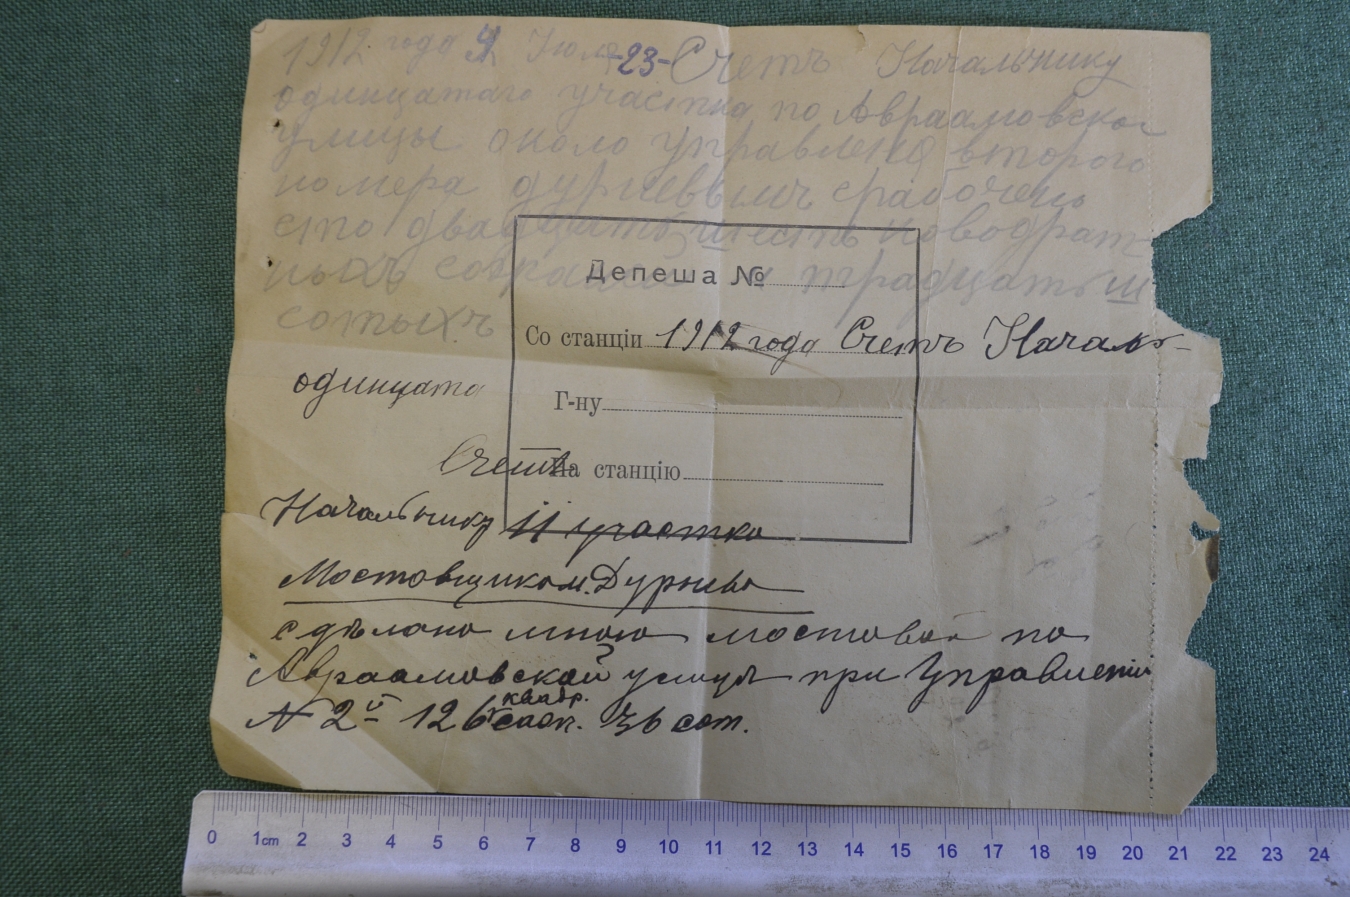 1912 года 4 Июля -23- Счетъ Начальнику
одинцатаго участка по Авраамовской
улицы около управления второго
номера дурневымъ сработено
сто двадцать шесть новодрат-
ныхъ сотыхъ
Депеша №
Со станціи 1912 года Счетъ Началь-
одинцата
Г-ну
Счетъ
На станцію
Начальнику 11 участка
Мостовщиком. Дурнева
сдѣлано мною мостовой по
Авраамовской улицѣ при Управленіи
N 2й 126 квадр. саж. 36 сот.
0 1cm 2 3 4 5 6 7 8 9 10 11 12 13 14 15 16 17 18 19 20 21 22 23 24